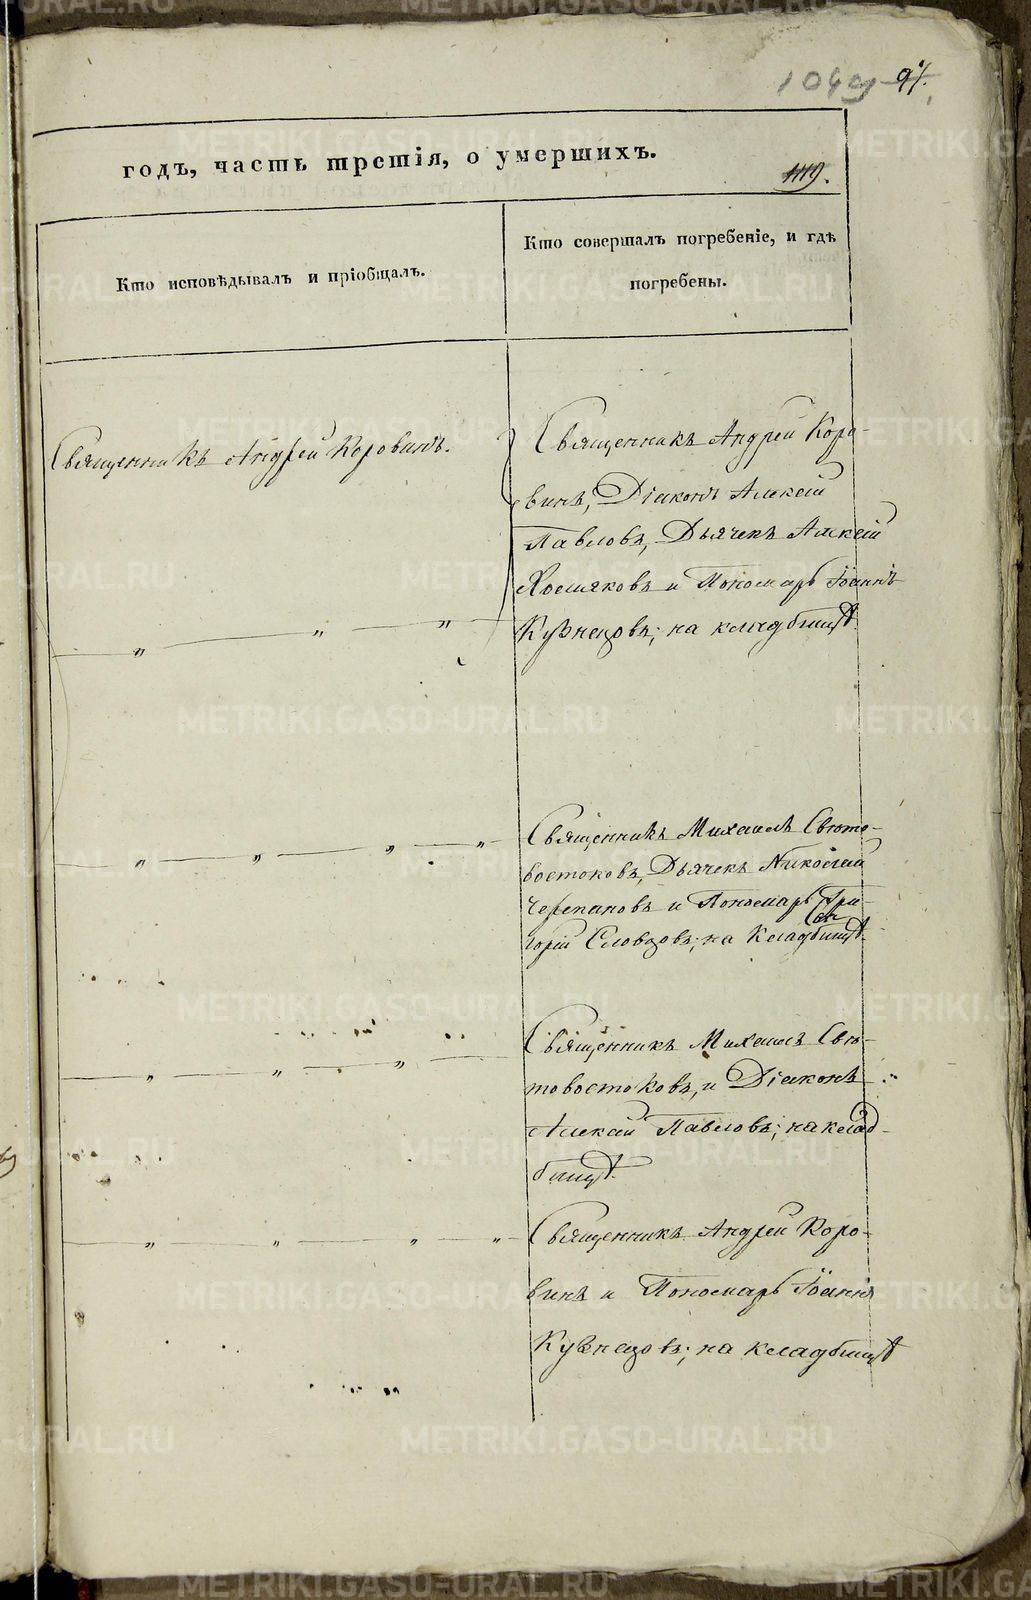 1049 97.
годъ, часть третія, о умершихъ.
1119.
Кто исповѣдывалъ и пріобщалъ.
Кто совершалъ погребеніе, и гдѣ
погребены.
Священникъ Андрей Коровинъ.
Священникъ Андрей Коро-
винъ, Діаконъ Алексій
Павловъ, Дьячекъ Алексій
Хомяковъ и Пономарь Іоаннъ
Кузнецовъ; на кладбищѣ.
Священникъ Михаилъ Свято-
востоковъ, Дьячекъ Николай
Черепановъ и Пономарь Гри-
горій Словцовъ; на Кладбищѣ.
Священникъ Михаилъ Свя-
товостоковъ, и Діаконъ
Алексій Павловъ; на клад-
бищѣ.
Священникъ Андрей Коро-
винъ и Пономарь Іоаннъ
Кузнецовъ; на кладбищѣ
METRIKI.GASO-URAL.RU